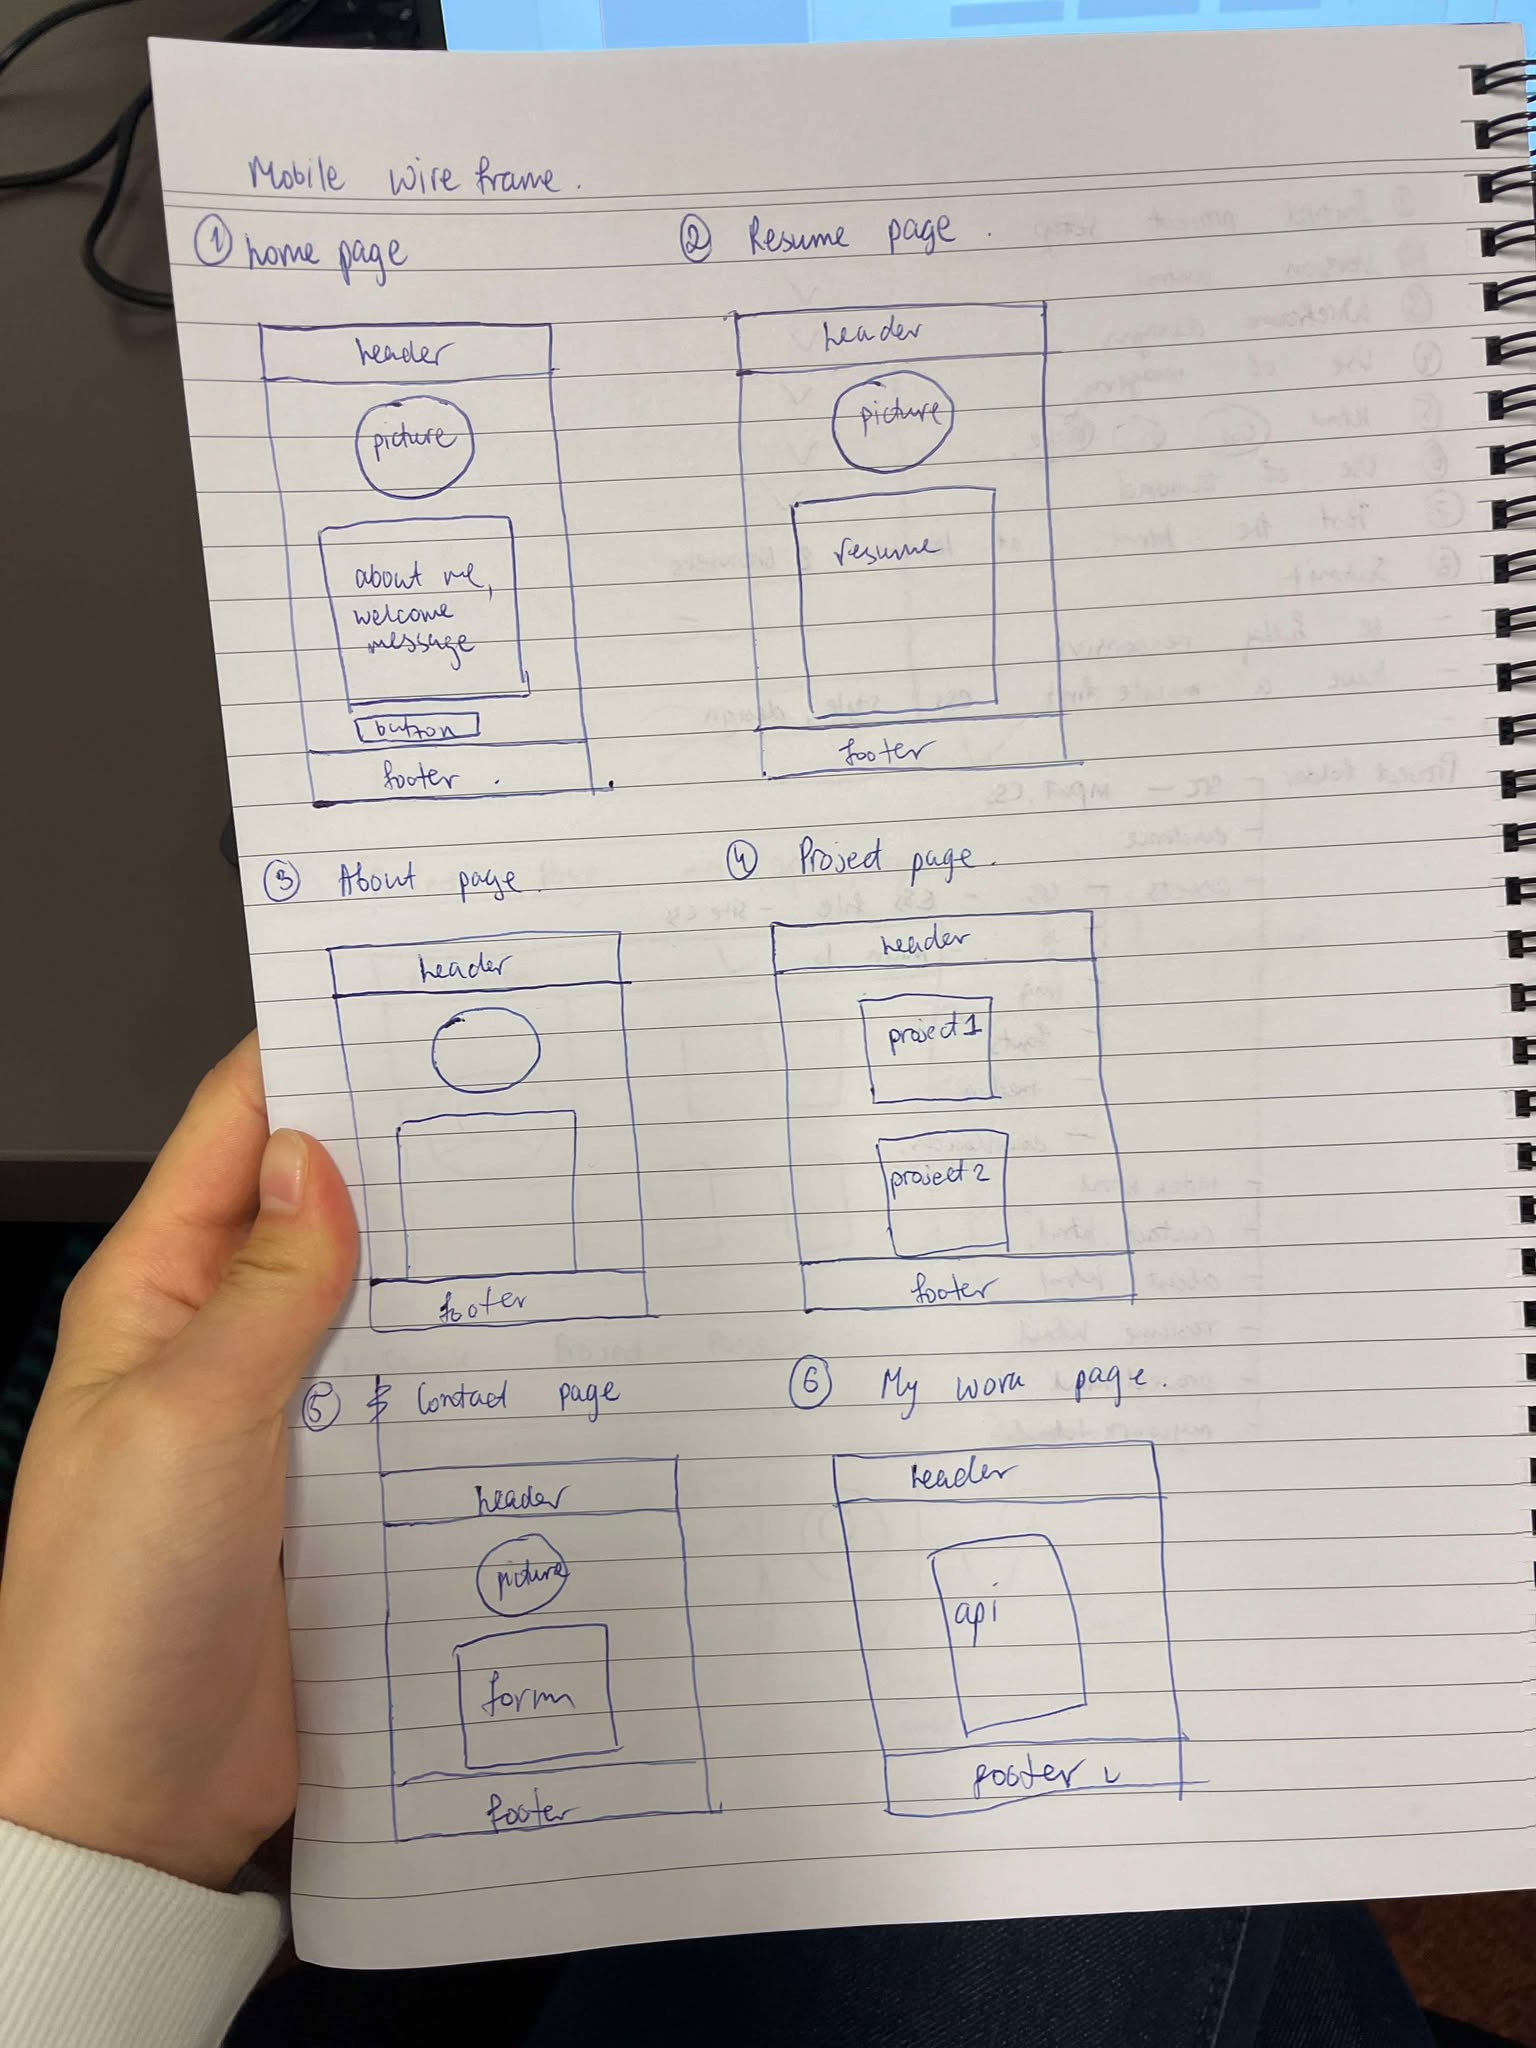 Mobile wire frame.
① home page
header
picture
about me,
welcome
message
button
footer .
② Resume page .
header
picture
resume
footer
③ About page .
header
footer
④ Project page .
header
project 1
project 2
footer
⑤ Contact page
header
picture
form
footer
⑥ My work page .
header
api
footer